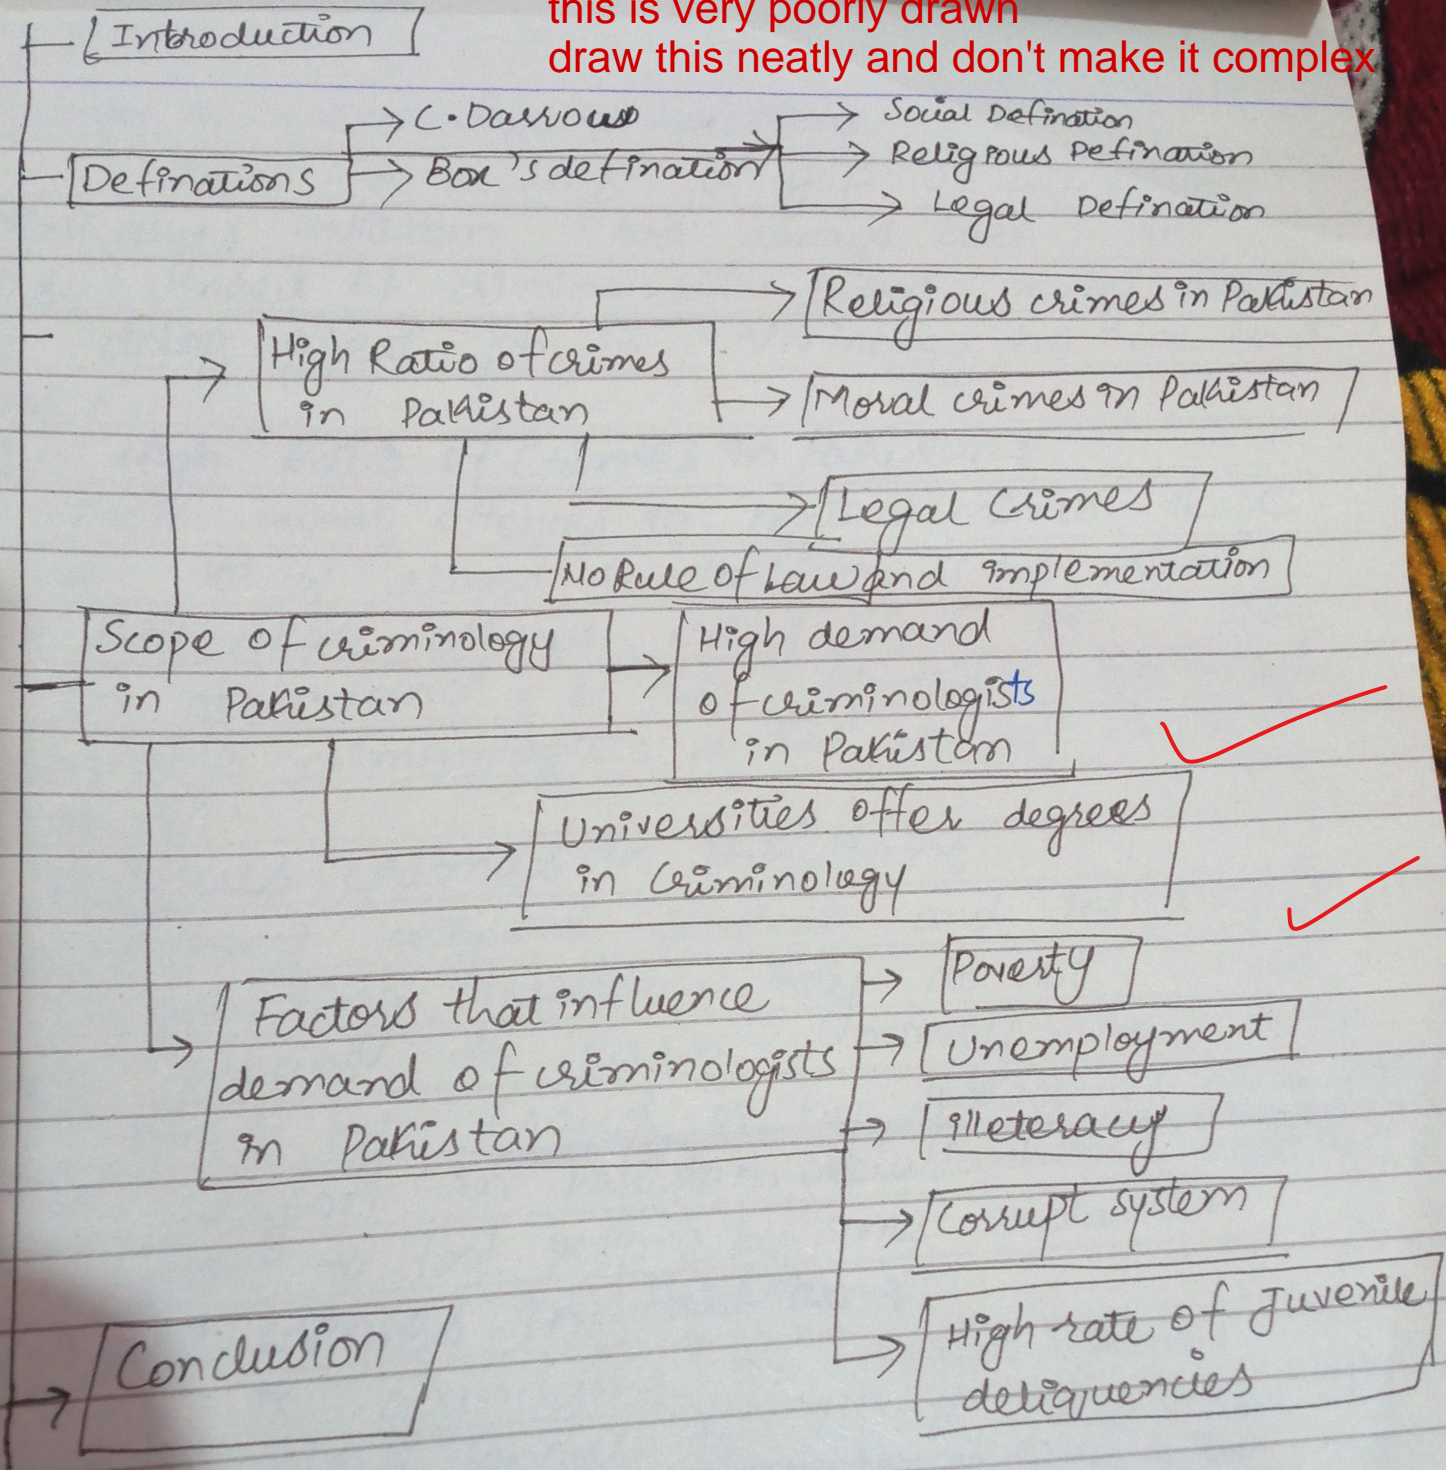 this is very poorly drawn
draw this neatly and don't make it complex
Introduction
Definations
C. Darrow
Box's defination
Social Defination
Religious Defination
Legal Defination
High Ratio of crimes
in Pakistan
Religious crimes in Pakistan
Moral crimes in Pakistan
Legal Crimes
No Rule of Law and implementation
Scope of criminology
in Pakistan
High demand
of criminologists
in Pakistan
Universities offer degrees
in Criminology
Factors that influence
demand of criminologists
in Pakistan
Poverty
Unemployment
illeteracy
Corrupt system
High rate of Juvenile
deliquencies
Conclusion